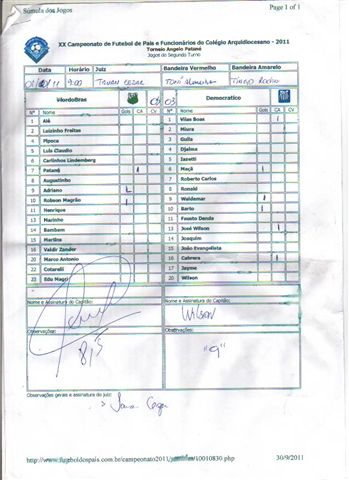 Súmula dos Jogos Page 1 of 1
XX Campeonato de Futebol de Pais e Funcionários do Colégio Arquidiocesano - 2011
Torneio Angelo Patamé
Jogos do Segundo Turno
Data Horário Juiz Bandeira Vermelho Bandeira Amarelo
9:00 Tiago Rocho
VerdoBras 03 Democratico
Nº Nome Gols CA CV Nº Nome Gols CA CV
1 Alê 1 Vilas Boas
2 Luizinho Freitas 2 Miura
4 Pipoca 3 Guila
5 Luis Claudio 4 Djalma
6 Carlinhos Lindemberg 5 Iazetti
7 Patamá 6 Maçã
8 Augustinho 7 Roberto Carlos
9 Adriano 8 Ronald
10 Robson Magrão 9 Waldemar
11 Henrique 10 Barto
13 Marinho 11 Fausto Denda
14 Bambam 13 José Wilson
15 Martins 14 Joaquim
16 Valdir Zander 15 João Evangelista
20 Marco Antonio 16 Cabrera
22 Cotarelli 17 Jayme
23 Edu Magri 20 Wilson
Nome e Assinatura do Capitão: Nome e Assinatura do Capitão:
WILSON
Observações: Observações:
"9"
Observações gerais e assinatura do juiz:
30/9/2011